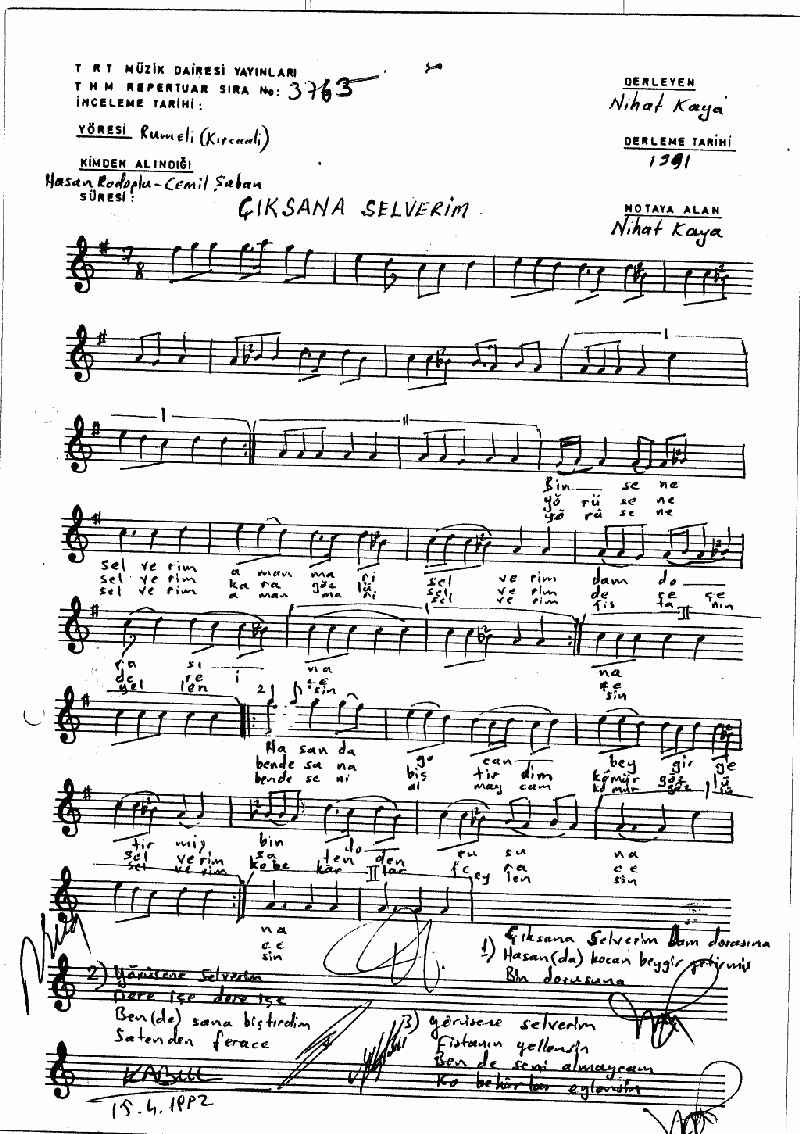 T R T MÜZİK DAİRESİ YAYINLARI
T H M REPERTUAR SIRA No: 3763
İNCELEME TARİHİ:
YÖRESİ Rumeli (Kırcaali)
KİMDEN ALINDIĞI
Hasan Rodoplu-Cemil Şaban
SÜRESİ:
DERLEYEN
Nihat Kaya
DERLEME TARİHİ
1991
NOTAYA ALAN
Nihat Kaya
ÇIKSANA SELVERİM
Bin se ne
yö rü se ne
yö rü se ne
sel ve rim a man ma ni sel ve rim dam do
sel ve rim ka ra göz lü sel ve rim de re çe
sel ve rim a man ma ni sel ve rim fis ta nın
ra sı na na
de re i
yel len sin sin
Ha san da go can bey gir ge
bende sa na biş tir dim kömür göz lü
bende se ni al may cam kömür göz lü
tir miş bin do ru su na
sel verim sa ten den fe ra ce
sel ve rim ko be kâr lar ey len sin
na
ce
sin
1) Çıksana Selverim Dam dorasına
Hasan(da) kocan beygir getirmiş
Bin dorusuna
2) Yörüsene Selverim
Dere içe dere içe
Ben(de) sana biştirdim
Satenden ferace
3) yörüsene selverim
Fistanın yellensin
Ben de seni almaycam
Ko bekârlar eylensin
KABUL
15.4.1992